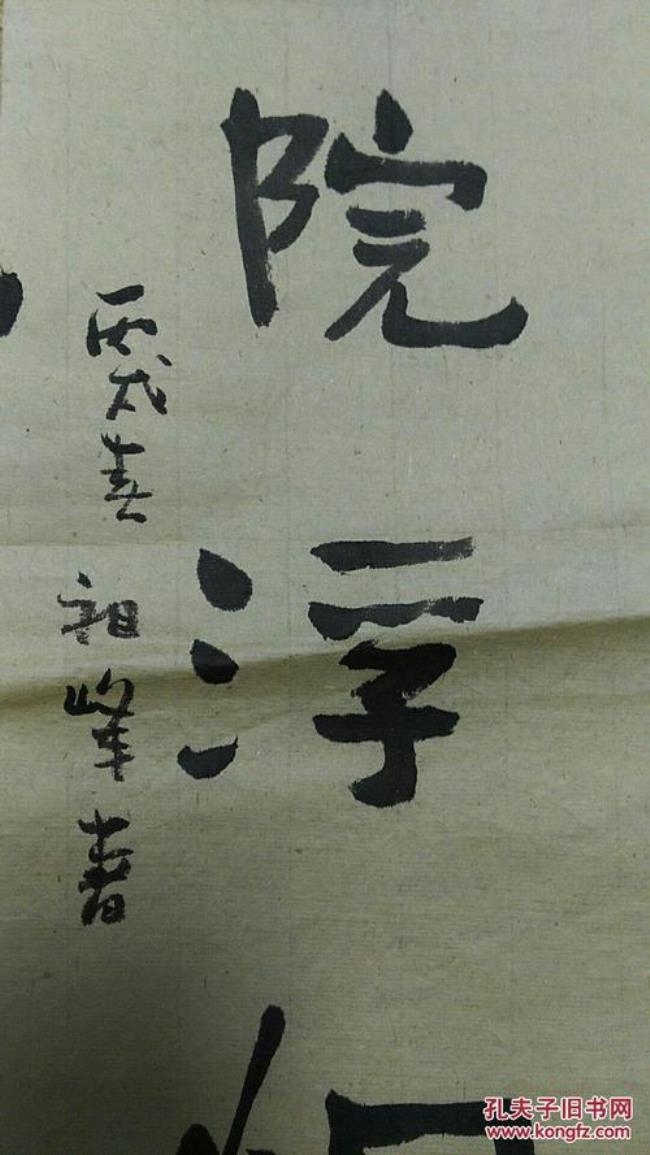 院浮
丙戌春 祖峰書
孔夫子旧书网
www.kongfz.com